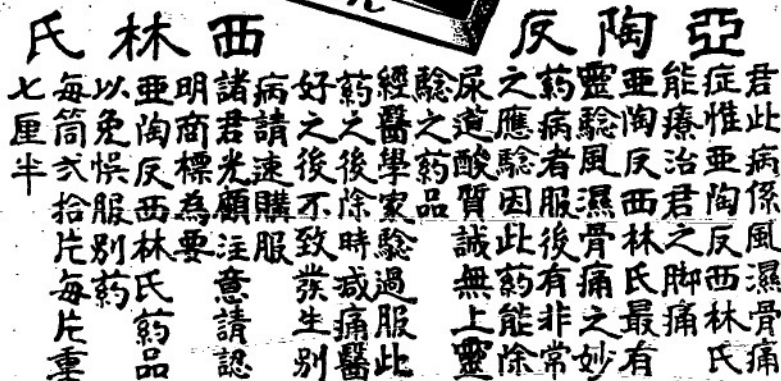 亞陶反西林氏
君此病係風濕骨痛
症惟亞陶反西林氏
能療治君之脚痛
亞陶反西林氏最有
靈騐風濕骨痛之妙
葯病者服後有非常
之應騐因此葯能除
尿道酸質誠無上靈
騐之葯品
經醫學家騐過服此
葯之後除時减痛醫
好之後不致發生別
病請速購服
諸君光顧注意請認
明商標為要
亜陶反西林氏葯品
以免悞服別葯
每筒弍拾片每片重
七厘半